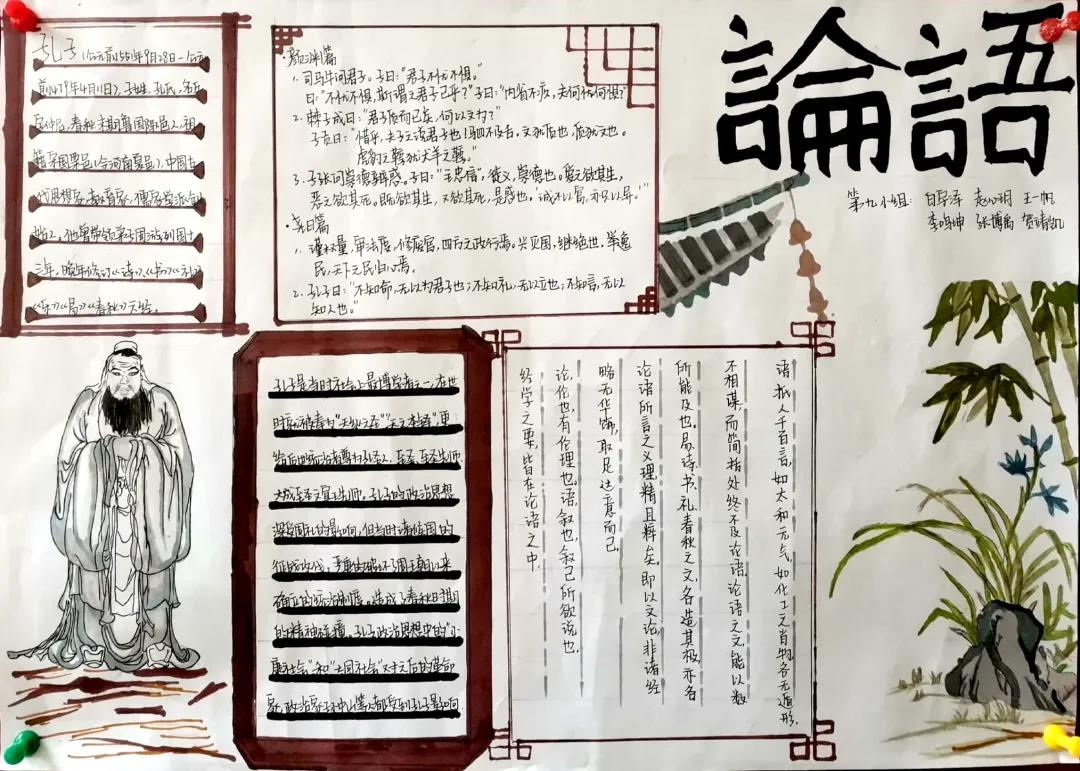 論語
第九小组: 白学泽 赵心玥 王一帆
李鸣坤 张博禹 贺靖凯
孔子(公元前551年9月28日—公元
前479年4月11日),子姓,孔氏,名丘
字仲尼,春秋末期鲁国陬邑人,祖
籍宋国栗邑(今河南夏邑),中国古
代思想家,教育家,儒家学派创
始人,他曾带领弟子周游列国十
三年,晚年修订《诗》《书》《礼》
《乐》《易》《春秋》六经。
·颜渊篇
1. 司马牛问君子。子曰:“君子不忧不惧。”
曰:“不忧不惧,斯谓之君子已乎?”子曰:“内省不疚,夫何忧何惧?”
2. 棘子成曰:“君子质而已矣,何以文为?”
子贡曰:“惜乎,夫子之说君子也!驷不及舌。文犹质也,质犹文也。
虎豹之鞟犹犬羊之鞟。”
3. 子张问崇德辨惑。子曰:“主忠信,徙义,崇德也。爱之欲其生,
恶之欲其死。既欲其生,又欲其死,是惑也。‘诚不以富,亦只以异。’”
·尧曰篇
1. 谨权量,审法度,修废官,四方之政行焉。兴灭国,继绝世,举逸
民,天下之民归心焉。
2. 孔子曰:“不知命,无以为君子也;不知礼,无以立也;不知言,无以
知人也。”
孔子是当时社会上最博学者之一,在世
时就被尊为“天纵之圣”“天之木铎”,更
被后世统治者尊为孔圣人、至圣、至圣先师、
大成至圣文宣王先师。孔子的政治思想
深受周礼的影响,但当时诸侯国的
征战攻伐,严重破坏了周王朝以来
确立的统治制度。造成了春秋时期
的精神碰撞,孔子政治思想中的“小
康社会”和“大同社会”对之后的革命
家,政治家孙中山等人都受到孔子影响
语拟人千百言,如太和元气,如化工之肖物,各无遁形.
不相谋,而简括处终不及论语.论语之文,能以数
所能及也.易诗书礼春秋之文,各造其极,亦各
论语所言之义理精且粹矣.即以文论,非诸经
略无华饰,取足达意而已.
论,伦也,有伦理也.语,叙也,叙己所欲说也.
经学之要,皆在论语之中.